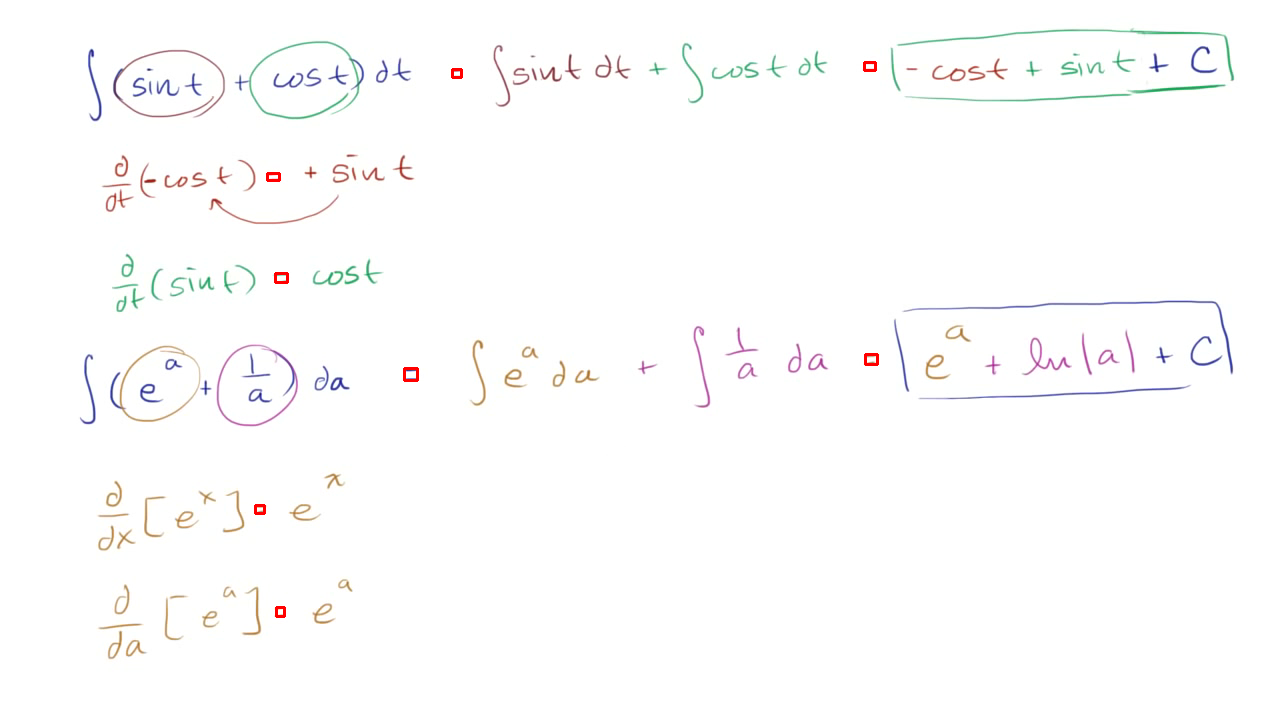 ∫(sin t + cos t) dt ∫sin t dt + ∫cos t dt - cos t + sin t + C
d/dt (-cos t) + sin t
d/dt (sin t) cos t
∫(e^a + 1/a) da ∫e^a da + ∫ 1/a da e^a + ln|a| + C
d/dx [e^x] e^x
d/da [e^a] e^a